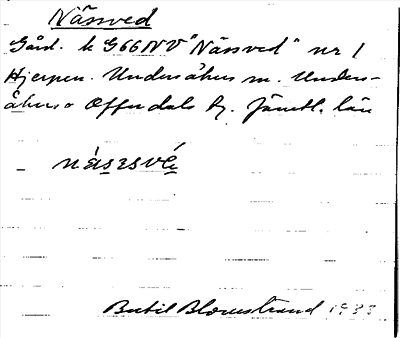 Nässved
Gård. k G66NV "Nässved" nr 1
Hjerpen. Undersåkers sn. Unders-
åkers o Offerdals tg. Jämtl. län
Bertil Blomstrand 1933